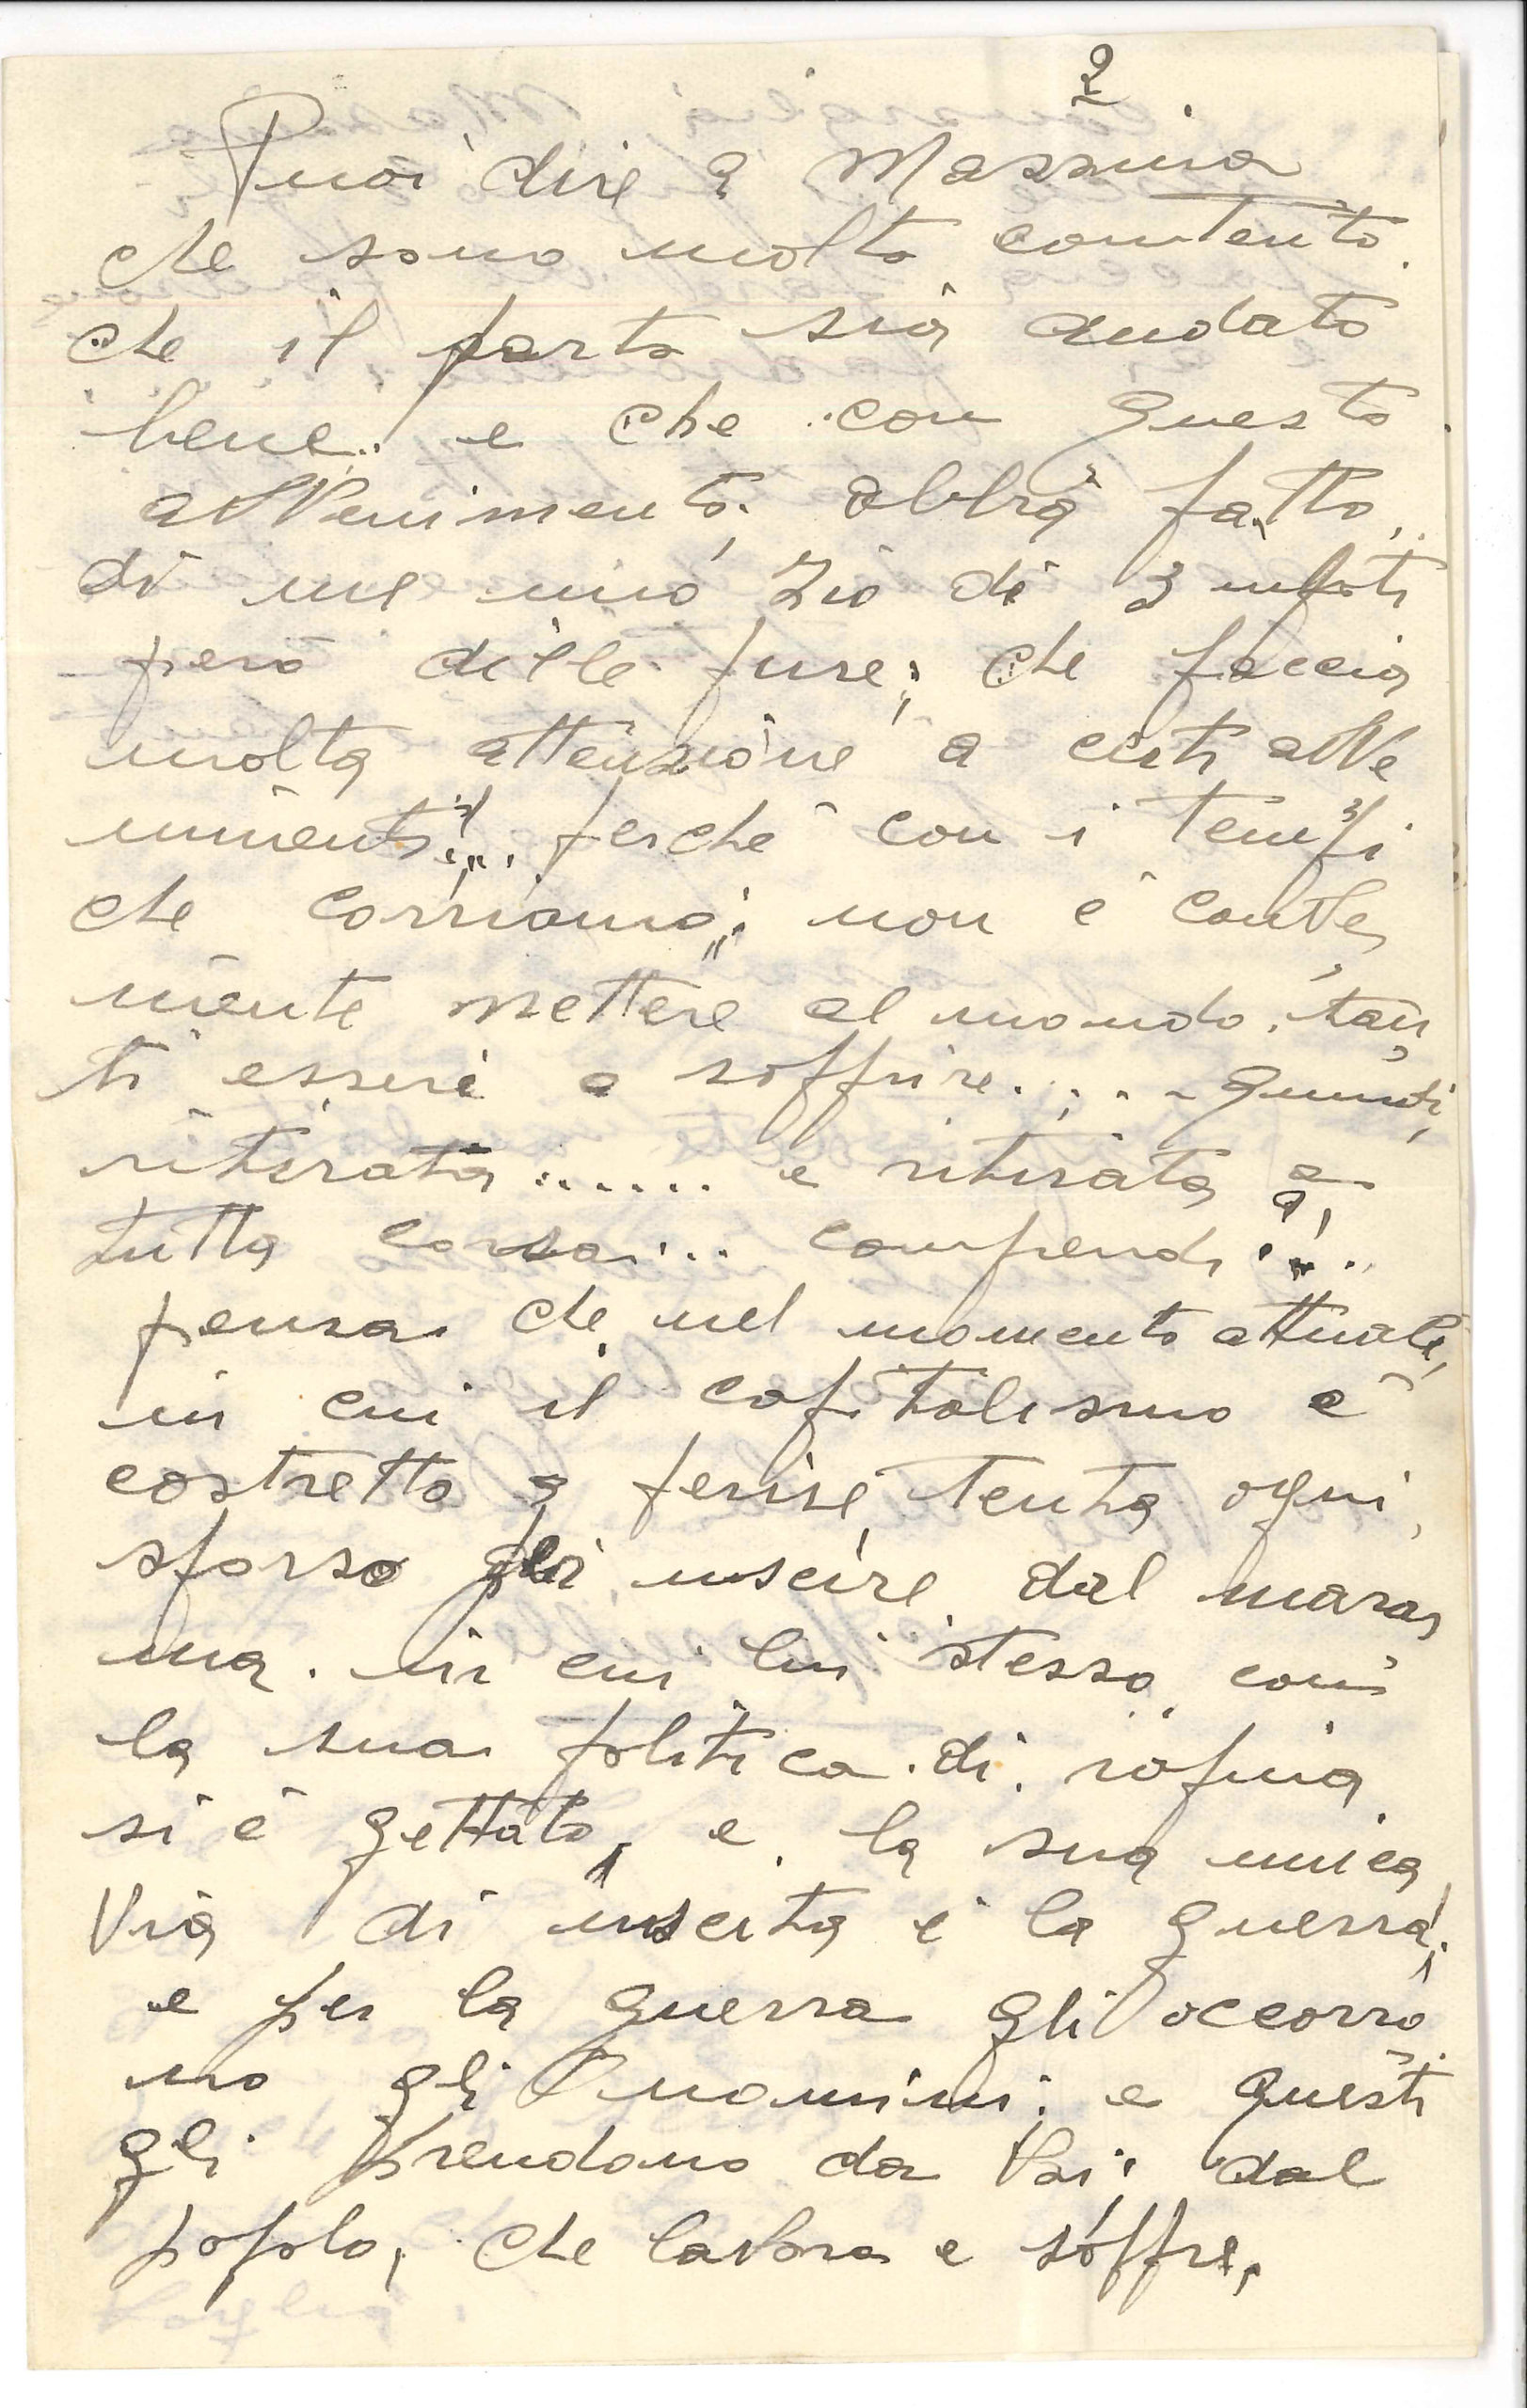 2
Puoi dire a Massima
che sono molto contento
che il parto sia andato
bene. e che con questo
avvenimento, abbia fatto,
di me uno Zio di 3 nipoti
però dille pure; che faccia
molta attenzione a certi avve
nimenti!... perchè con i tempi
che corriamo; non è conve,
niente mettere al mondo, tan,
ti esseri a soffrire.... quindi,
ritirata...... e ritirata a
tutta corsa... comprendi?!..
pensa che nel momento attuale,
in cui il capitalismo è
costretto a perire, tenta ogni
sforso per uscire dal maras
ma. in cui lui stesso con
la sua politica di rapina
si è gettato, e la sua unica
Via di uscita è la guerra!
e per la guerra gli occorro
no gli uomini; e questi
gli prendono da Voi; dal
popolo, che lavora e soffre,